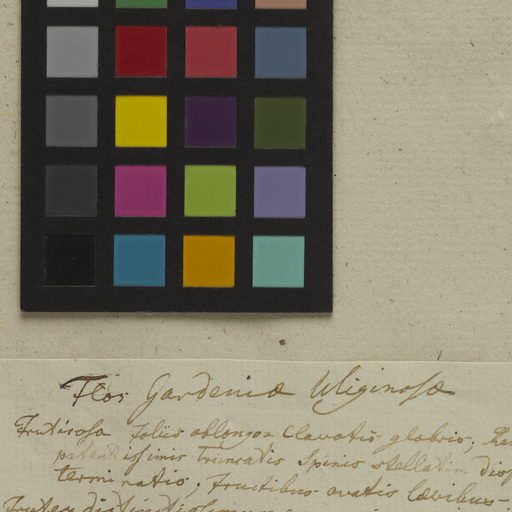 Flos Gardeniæ Uliginosæ
Frutisosa foliis oblongo= Clavatis glabris,
patentissimis truncatis Spinis stellatim
terminatis; Fructibus ovatis lævibus-